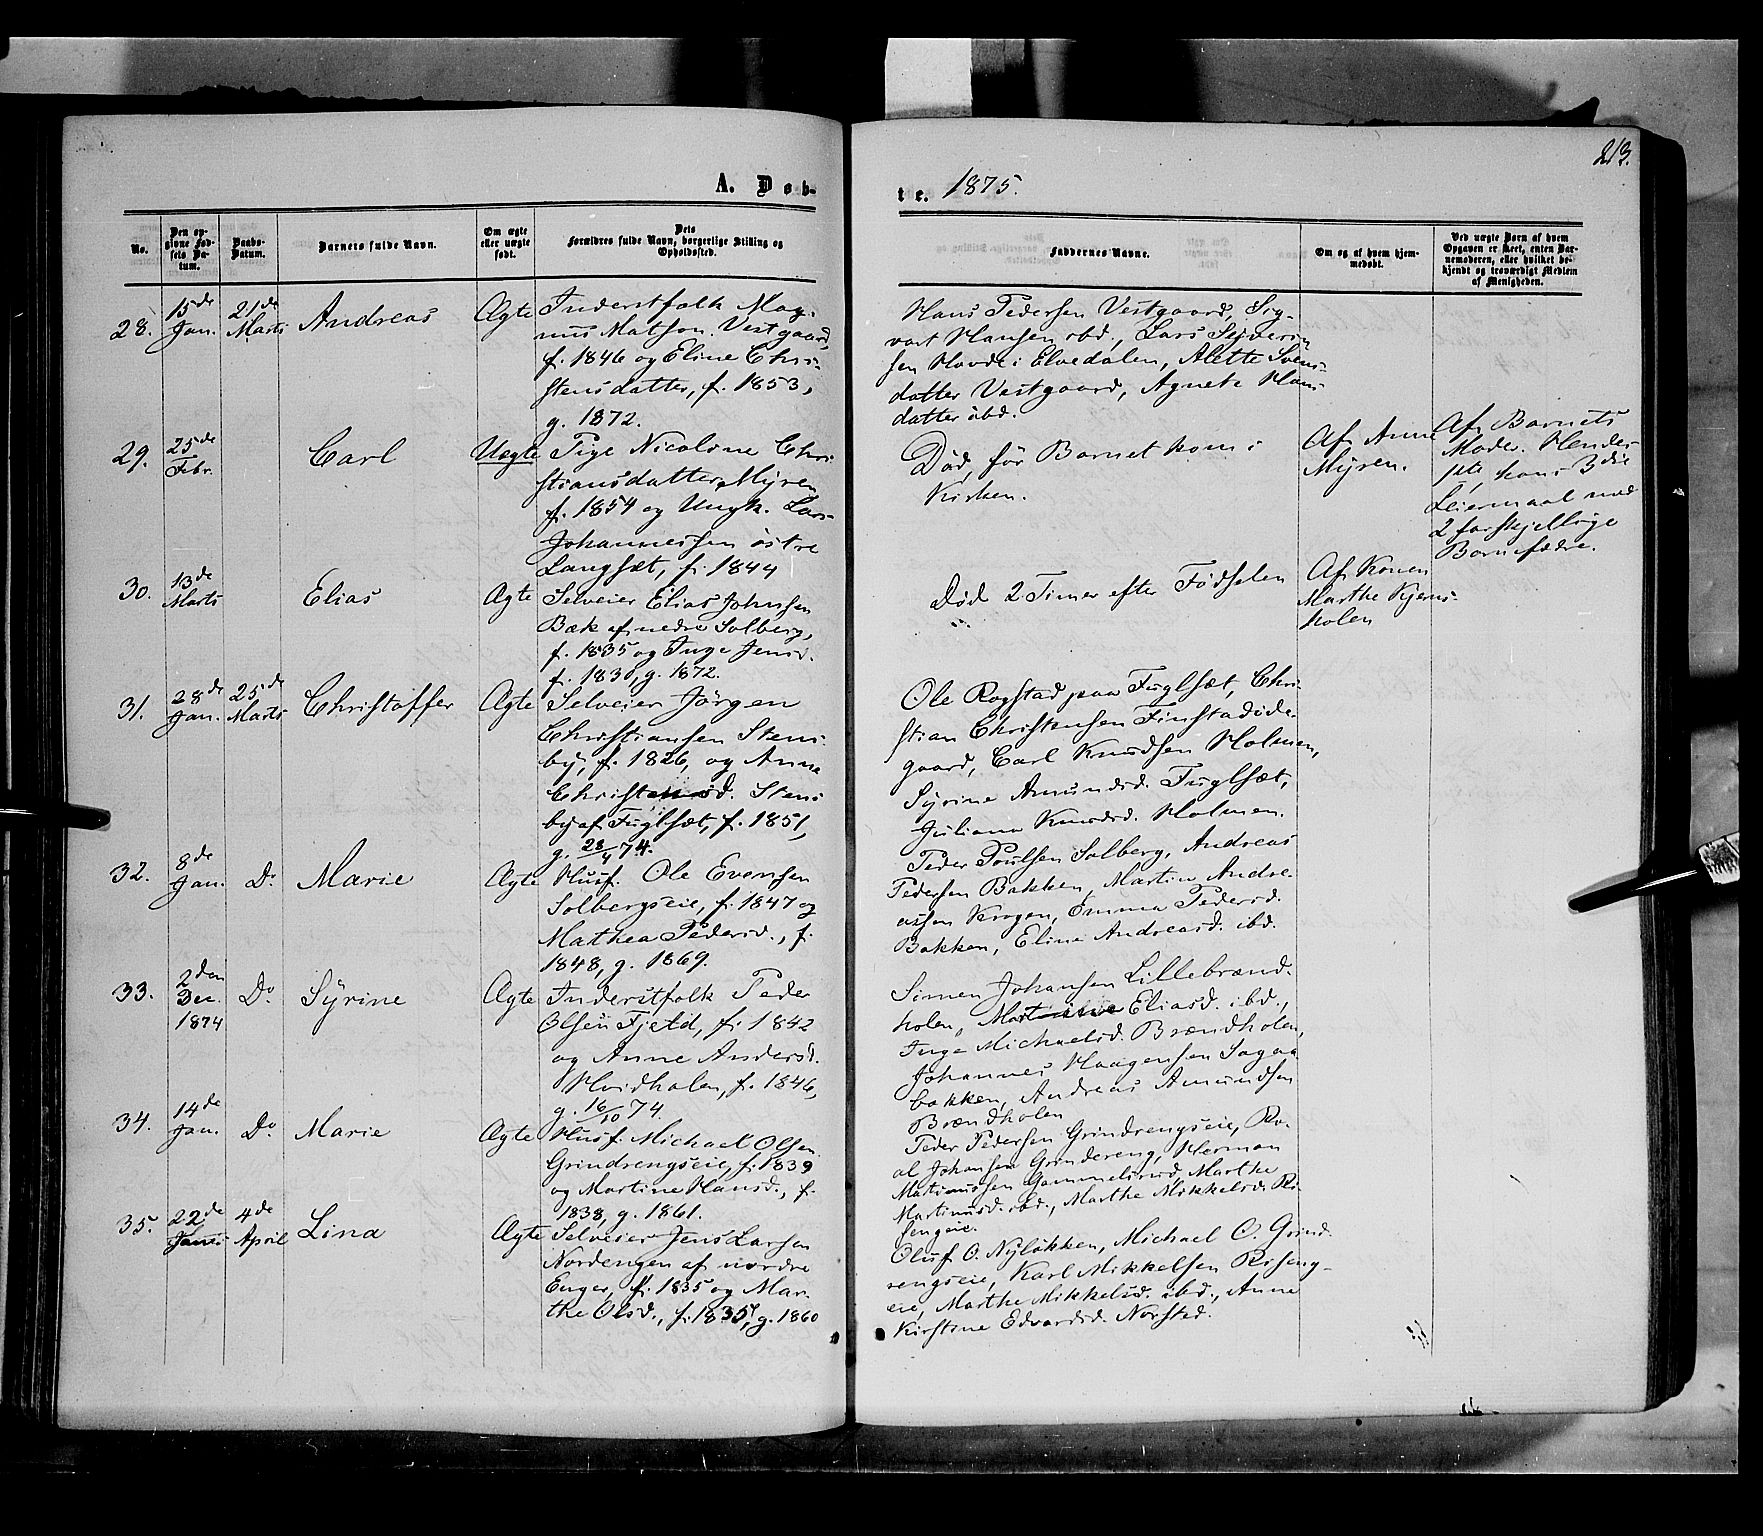 213.
A. Døb-
te. 1875.
No.
Den op-
givne Fød-
sels Da-
tum.
Daabs-
Datum.
Barnets fulde Navn.
Om ægte
eller uægte
født.
Dets
Forældres fulde Navn, borgerlige Stilling og
Opholdssted.
Faddernes Navne.
Om og af hvem hjem-
medøbt.
Ved uægte Børn af hvem
Opgaven er skeet, enten Bar-
nemoderen, eller hvilket be-
kjendt og troværdigt Medlem
af Menigheden.
28.
15de
Jan.
21de
Marts
Andreas
Ægte
Inderstfolk Mag-
nus Matson Vestgaard,
f. 1846 og Eline Chri-
stensdatter, f. 1853,
g. 1872.
Hans Pedersen Vestgaard, Sig-
vart Hansen ibd., Lars Syverin
sen Hovde i Elvedalen, Alette Svens-
datter Vestgaard, Agnete Hans-
datter ibd.
29.
25de
Febr.
Carl
Uægte
Pige Nicoline Chri-
stiansdatter Myren
f. 1854 og Ungk. Lars
Johannessen östre
Langsæt, f. 1844
Död, för Barnet kom i
Kirken.
Af Anne
Myren.
Af Barnets
Moder. Hendes
1ste, hans 3die
Leiermaal med
2 forskjellige
Barnefædre.
30.
13de
Marts
Elias
Ægte
Selveier Elias Johnsen
Bæk af nedre Solberg,
f. 1835 og Inge Jensd.
f. 1830, g. 1872.
Död 2 Timer efter Födselen
Af Konen
Marthe Kjerns-
holen
31.
28de
Jan.
25de
Marts
Christoffer
Ægte
Selveier Jörgen
Christiansen Stens-
by, f. 1826, og Anne
Christensd. Stens
by af Fuglsæt, f. 1851,
g. 28/4 74.
Ole Rogstad paa Fuglsæt, Chri-
stian Christensen Finstadöde-
gaard, Carl Knudsen Holmen,
Syrine Amundsd. Fuglsæt,
Juliana Knudsd. Holmen.
32.
8de
Jan.
Do
Marie
Ægte
Husf. Ole Evensen
Solbergseie, f. 1847 og
Mathea Pedersd., f.
1848, g. 1869.
Peder Poulsen Solberg, Andreas
Pedersen Bakken, Martin Andre-
assen Krogen, Emma Pedersd.
Bakken, Eline Andreasd. ibd.
33.
2den
Dec.
1874
Do
Syrine
Ægte
Inderstfolk Peder
Olsen Fjeld, f. 1842
og Anne Andersd.
Hvidholen, f. 1846,
g. 16/10 74.
Simen Johansen Lillebrænd-
holen, Eliasd. ibd.,
Inge Michaelsd. Brændholen,
Johannes Haagensen Sagaa
bakken, Andreas Amundsen
Brændholen
34.
14de
Jan.
Do
Marie
Ægte
Husf. Michael Olsen
Grindrengseie, f. 1839
og Martine Hansd., f.
1838, g. 1861.
Peder Pedersen Grindrengseie, Ro-
al Johansen Grindereng, Herman
Martinussen Gammelsrud, Marthe
Martinusd. ibd., Marthe Mikkelsd. Ri-
sengeie.
35.
22de
4de
April
Lina
Ægte
Selveier Jens Larsen
Nordengen af nordre
Enger, f. 1835 og Mar-
the Olsd., f. 1835, g. 1860
Oluf O. Nyløkken, Michael O. Grind-
rengseie, Karl Mikkelsen Riseng-
eie, Marthe Mikkelsd. ibd., Anne
Kirstine Edvardsd. Norsted.